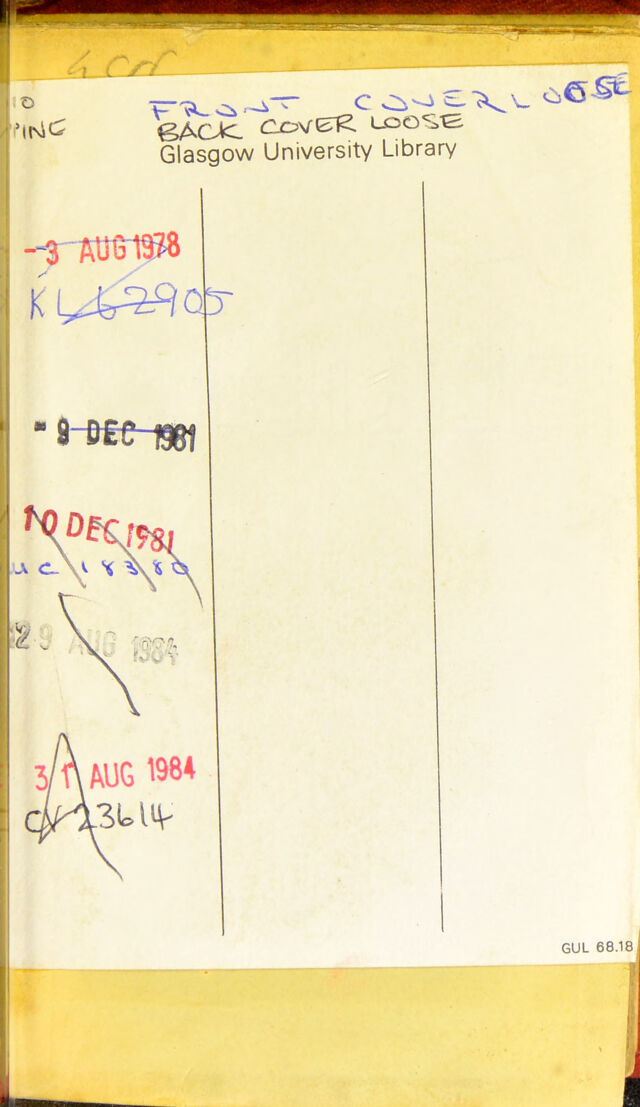 FRONT COVER LOOSE
BACK COVER LOOSE
Glasgow University Library
-3 AUG 1978
KL 62905
-9 DEC 1981
10 DEC 1981
UC 18380
29 AUG 1984
31 AUG 1984
23614
GUL 68.18